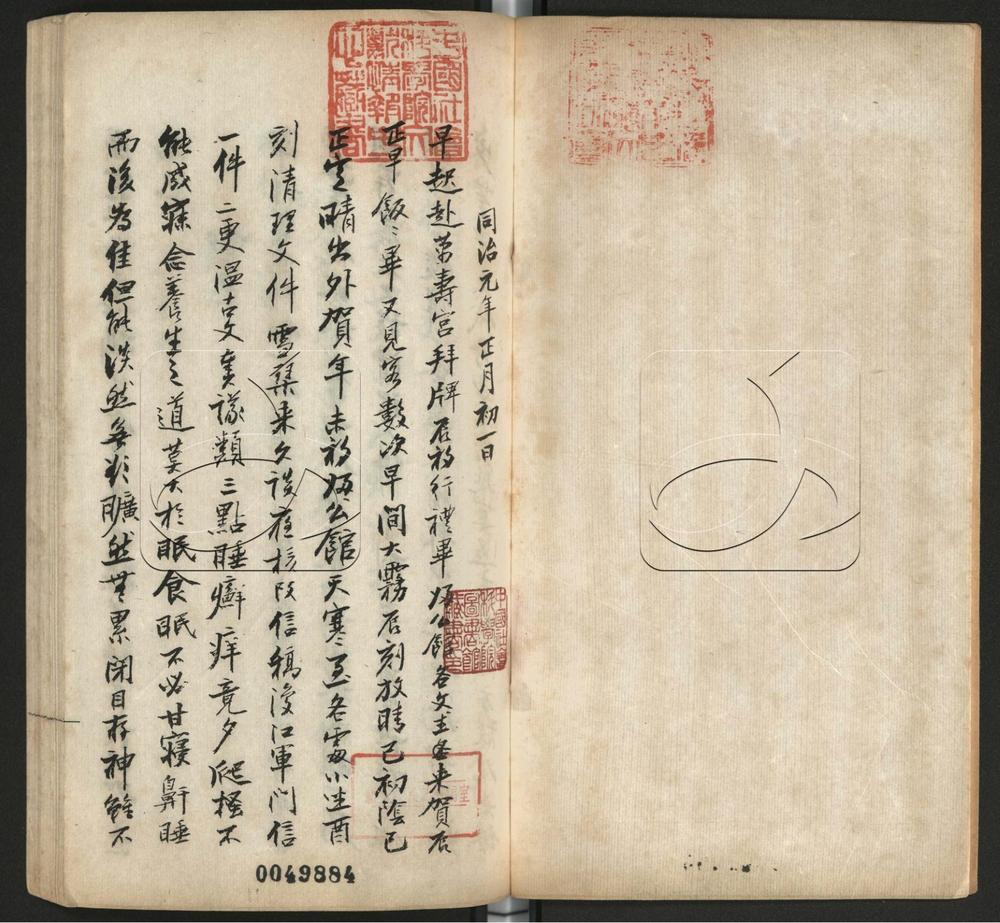 同治元年正月初一日
早起赴萬壽宮拜牌辰初行禮畢歸公館各文武各來賀辰
正早飯〻畢又見客數次早間大霧辰刻放晴巳初陰巳
正定晴出外賀年未初歸公館天寒至各處小坐酉
刻清理文件雪琴來久談旋核改信稿復江軍門信
一件二更溫古文奏議類三點睡癬痒竟夕爬搔不
能成寐念養生之道莫大於眠食眠不必甘寢鼾睡
而後為佳但能淡然無欲曠然無累閉目存神雖不
0049884